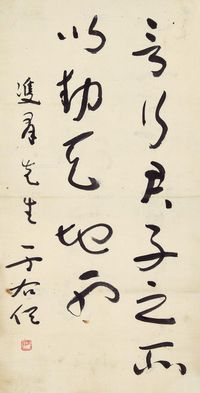 言行君子之所
以動天地也
先生 于右任